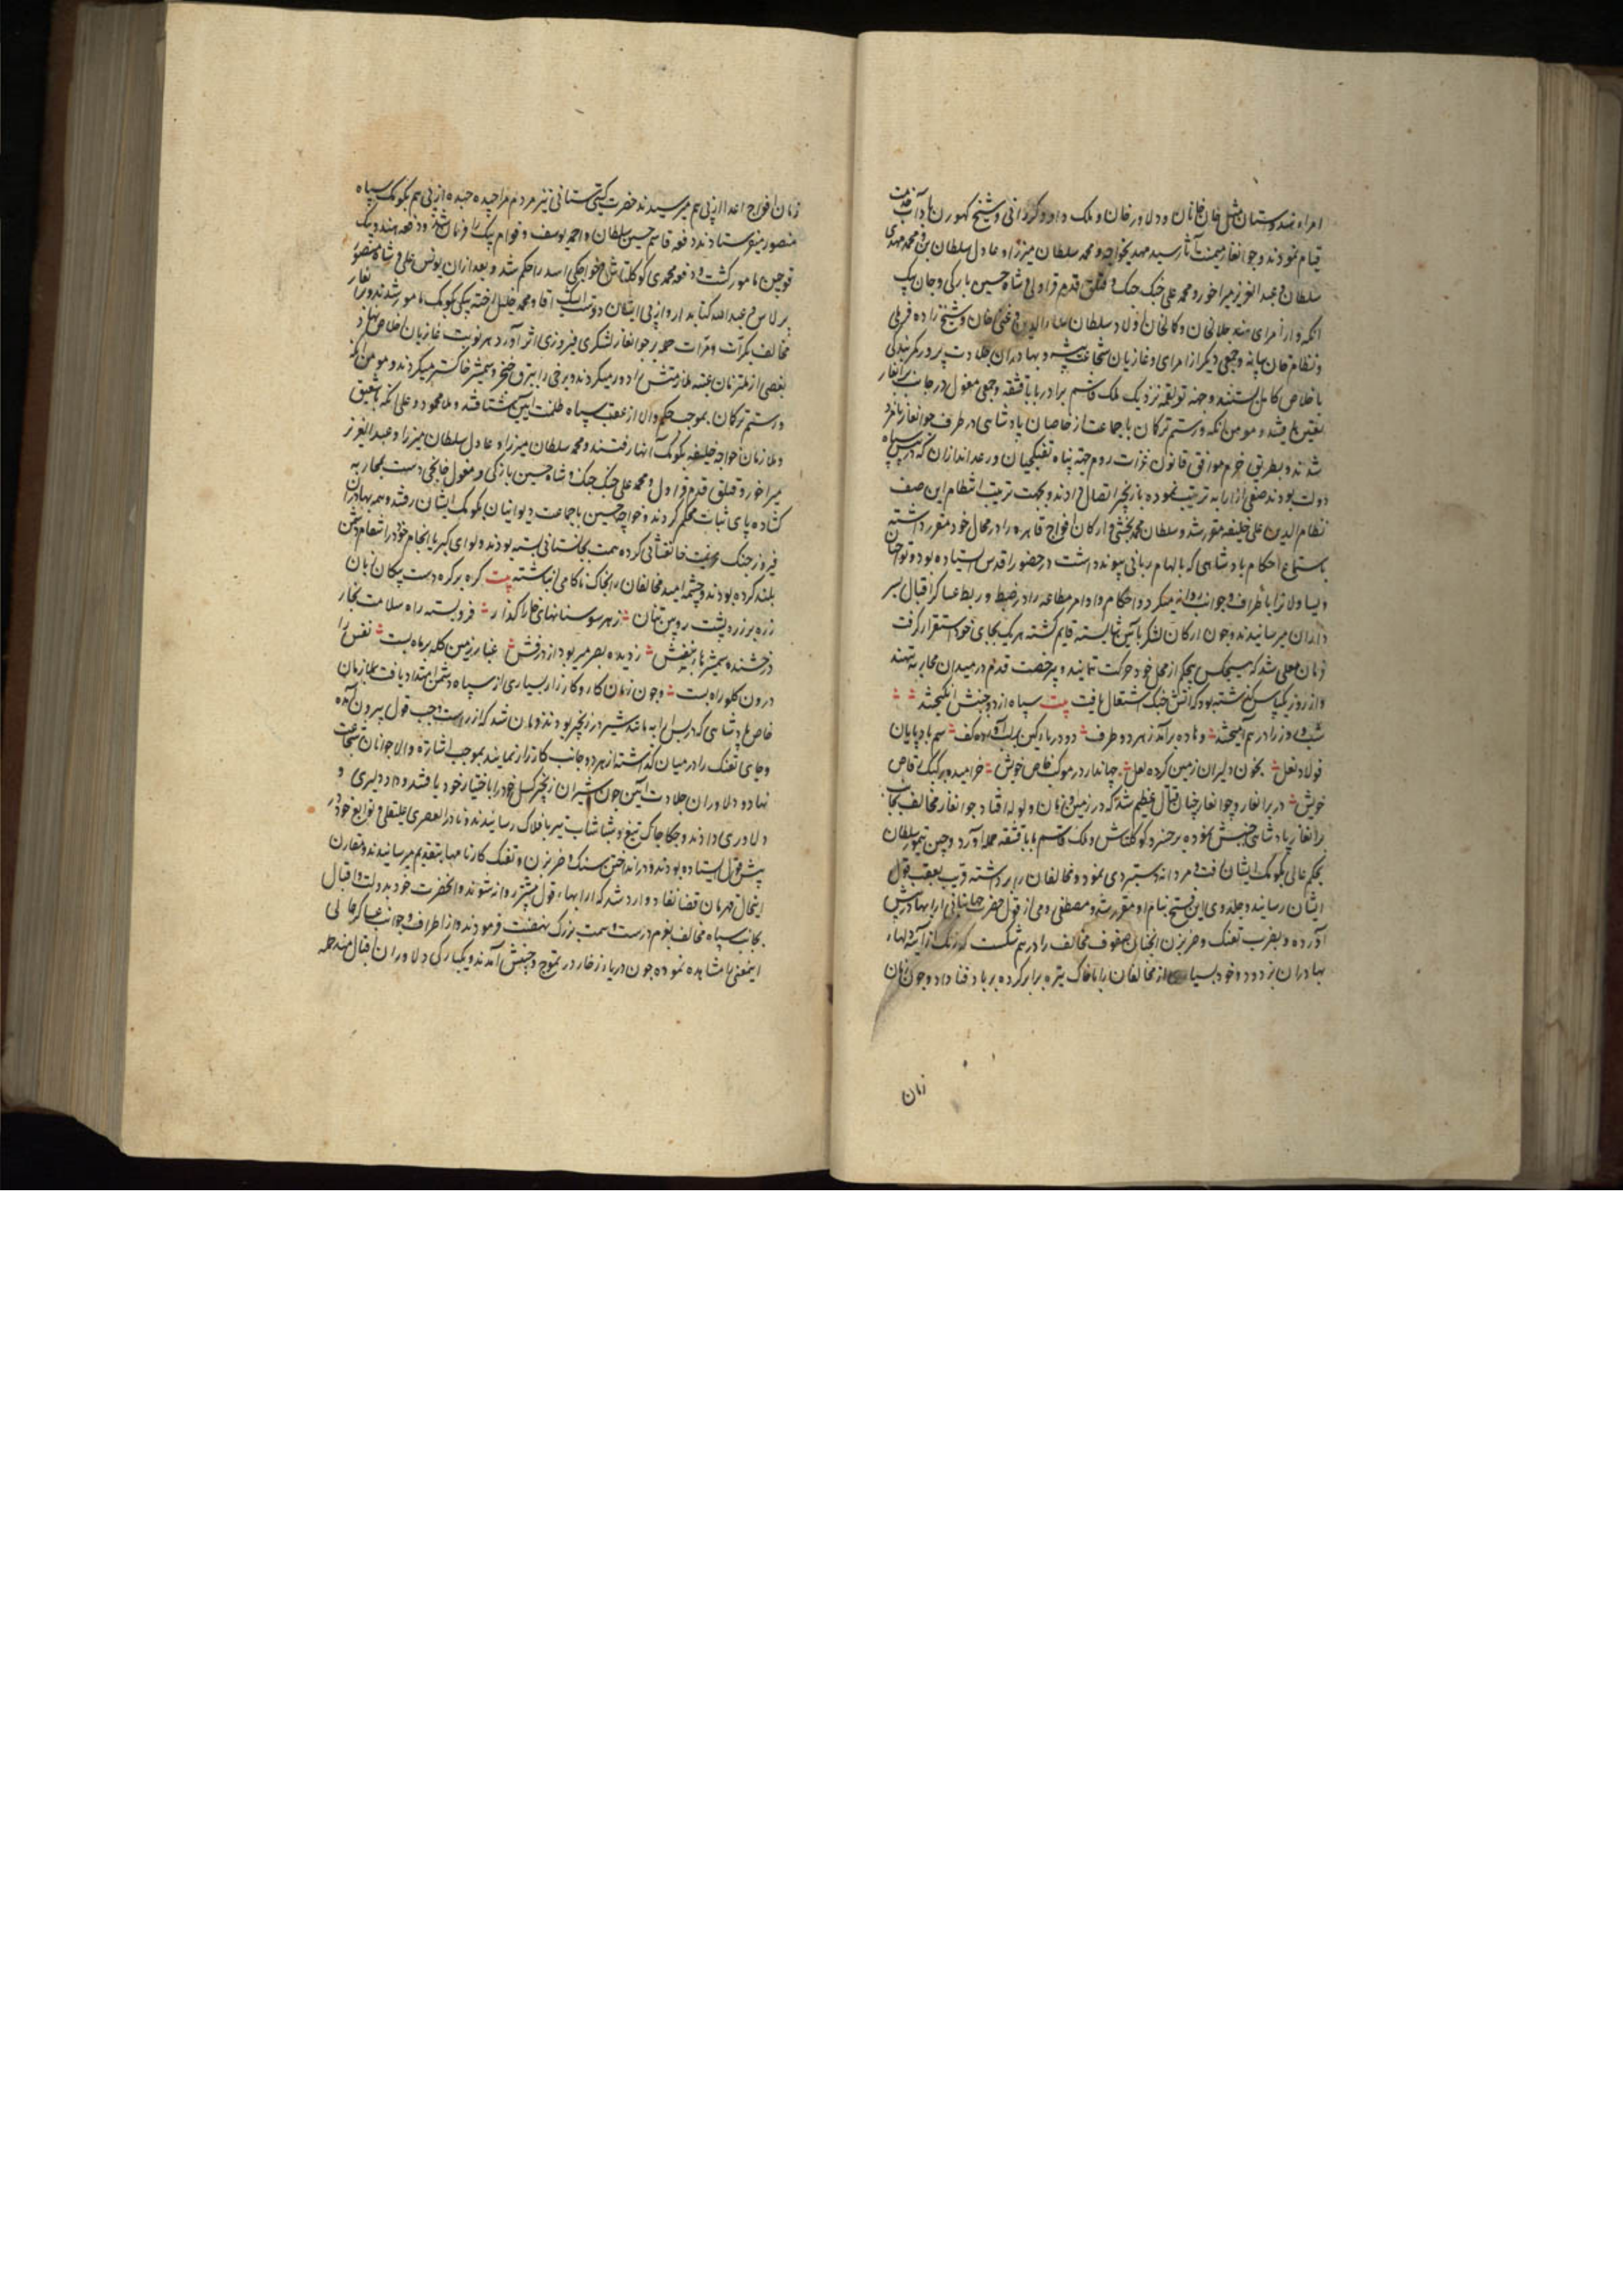 امراء هندوستان مثل خان خانان و دلاور خان و ملک داود کررانی و شیخ کهورن بآداب خدمت
قیام نمودند و جوانغار میمنت آثار سید مهدی خواجه و محمد سلطان میرزا و عادل سلطان بن مهدی
سلطان و عبد العزیز میر اخور و محمد علی خنک جنک و قتلق قدم قراول و شاه حسین بارکی و جان بیک
اتکه و از امرای هند جلال خان و کمال خان اولاد سلطان علاء الدین و علی خان و شیخ زاده فرملی
و نظام خان بیانه و جمعی دیگر از امرای و غازیان شجاعت پیشه و بهادران جلادت پرور کمر بندکی
باخلاص کامل بستند و جهة تولقمه تردیک ملک قاسم برادر بابا قشقه و جمعی مغول در جانب برانغار
تعیین یافتند و مومن اتکه و رستم ترکمان با جماعت از خاصان پادشاهی در طرف جوانغار نامزد
شدند و بطریق حزم موافق قانون غزات روم جهة پناه تفنکچیان و رعد اندازان که در پیش سپاه
دولت بودند صفی از ارابه ترتیب نموده بزنجیر اتصال دادند و بجهت ترتیب انتظام این صف
نظام الدین علی خلیفه مقرر شد و سلطان محمد بخشی ارکان افواج قاهره را در محال خود مقرر داشته
باستماع احکام پادشاهی که بالهام ربانی پیوند داشت در حضور اقدس ایستاده بود و تواجیان
و یساولان را باطراف و جوانب روانه میکرد و احکام و اوامر مطاعه را در ضبط و ربط عساکر اقبال بسر
داران میرسانیدند و چون ارکان لشکر بآیین شایسته قایم کشته هر یک بجای خود استقرار کرفت
فرمان معلی شد که هیچکس بیحکم از محل خود حرکت ننمایند و بی رخصت قدم در میدان محاربه ننهند
و از روز یکپاس گذشته بود که آتش جنک اشتعال یافت بیت سپاه از دو جنبش انکیختند
شب و روز را درهم آمیختند و ماده برآمد ز هر دو طرف دو دریاء کین بر لب آورده کف سم بادپایان
فولاد نعل بخون دلیران زمین کرده لعل جهاندار در موکب خاص خویش خرامیده بر کبک رقاص
خویش در برانغار و جوانغار چنان قتال عظیم شد که در زمین و زمان ولوله افتاد جوانغار مخالف بجانب
برانغار پادشاهی جنبش نموده بر خسرو کوکلتاش و ملک قاسم بابا قشقه حمله آورد و چین تیمور سلطان
بحکم عالی بکومک ایشان رفت و مردانه دستبردی نمود و مخالفان را برداشته قریب بعقب قول
ایشان رسانید و جلدوی این فتح بنام او مقرر شد و مصطفی رومی از قول حضرت جهانبانی ارابها در پیش
آورده و بضرب تفنک و ضربزن آنچنان صفوف مخالف را درهم شکست که زنک از آینه دلهاء
بهادران زدود و خود بسیاری از مخالفان را با خاک تیره برابر کرده بر باد فنا داد و چون زمان
زمان
زمان افواج اعدا از پی هم میرسیدند حضرت کیتی ستانی نیز مردم را چیده چیده از پی هم بکومک سپاه
منصور میفرستادند دفعه قاسم حسین سلطان و احمد یوسف و قوام بیک را فرمان شد و دفعه هندو بیک
قوچین مامور کشت و دفعه محمدی کوکلتاش و خواجکی اسد را حکم شد و بعد از آن یونس علی و شاه منصور
برلاس و عبد الله کتابدار و از پی ایشان دوست ایشک آقا و محمد خلیل اخته بیکی بکومک مامور شدند و برانغار
مخالف بکرات و مرات حمله بر جوانغار لشکر فیروزی اثر آورد هر نوبت غازیان اخلاص نهاد
بعضی از ملتزمان عتبه ملازمتش را دور میکردند و برخی را ببرق خنجر و شمشیر خاکستر میکردند و مومن اتکه
و رستم ترکمان بموجب حکم والا از عقب سپاه ظلمت آیین شتافتند و ملا محمود و علی اتکه باشلیق
و ملازمان خواجه خلیفه بکومک آنها رفتند و محمد سلطان میرزا و عادل سلطان میرزا و عبد العزیز
میر اخور و قتلق قدم قراول و محمد علی خنک جنک و شاه حسین بارکی و مغول غانچی دست بمحاربه
کشاده پای ثبات محکم کردند و خواجه حسین با جماعت دیوانیان بکومک ایشان رفتند و همه بهادران
فیروز جنک بصفت جانفشانی کرده همت بجانستانی بسته بودند و لوای کبریا انجام خود را انتقام دشمن
بلند کرده بودند و چشمه امید مخالفان را بخاک ناکامی انباشته بیت کره بر کره دست پیکان زبان
زره بر زره پشت رویین تنان ز هر سو سنانهای خارا گذار فروبسته راه سلامت بخار
درخشنده شمشیر ها ز بنفش ز دیده بصر میربود از درفش غبار زمین کله بر ماه بست نفس را
درون کلو راه بست و چون زمان کار و کارزار بسیاری از سپاه دشمن امتداد یافت ملازمان
خاص پادشاهی که در پس ارابه مانند شیر در زنجیر بودند فرمان شد که از راست و چپ قول بیرون آمده
و جای تفنک را در میان گذاشته از هر دو جانب کارزار نمایند بموجب اشارة والا جوانان شجاعت
نهاد و دلاوران جلادت آیین چون شیران زنجیر کسل خود را باختیار خود یافتند و داد دلیری و
دلاوری دادند و چکاچاک تیغ و شاشاب تیر بافلاک رسانیدند و نادر العصری علیقلی با توابع خود در
پیش قول ایستاده بودند و در انداختن سنک و ضربزن و تفنک کارنامها بتقدیم میرسانیدند و مقارن
اینحال فرمان قضا نفاد وارد شد که ارابهاء قول پیشتر روانه شوند و آنحضرت خود بدولت و اقبال
بجانب سپاه مخالف بعزم درست و سمت بزرک نهضت فرمودند و از اطراف و جوانب عساکر عالی
اینمعنی را مشاهده نموده چون دریاء زخار در تموج و جنبش آمدند و یکبارکی دلاوران اقبال مند حمله